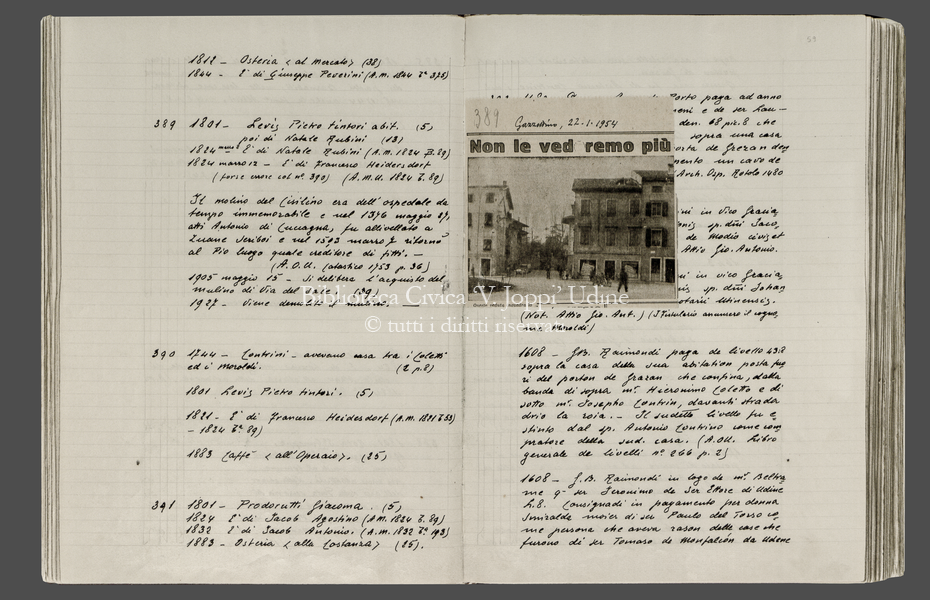 1812 – Osteria <al mercato> (38)
1844 – E' di Giuseppe Peverini (A.M. 1844 Tª 375)
389 1801 – Levis Pietro tintori abit. (5)
poi di Natale Rubini (13)
1824 E' di Natale Rubini (A.M. 1824 II. 89)
1824 marzo 12 – E' di Francesco Heidersdorf
(forse errore col nº 390) (A.M.U. 1824 Tª 89)
Il molino del Cisilino era dell'ospedale da
tempo immemorabile e nel 1376 maggio 27,
atti Antonio di Cucagna, fu allivellato a
Zuane Scriboi e nel 1593 marzo 7 ritornò
al Pio luogo quale creditore di fitti. –
(A.O.U. Catastico 1753 p. 36)
1905 maggio 15 – Si delibera l'acquisto del
mulino di Via del (39)
1927 – Viene demolito il mulino. –
390 1744 – Contrini – avevano casa tra i Coletti
ed i Moroldi. (2 p. 8)
1801 Levis Pietro tintori. (5)
1821 – E' di Francesco Heidersdorf (A.M. 1821 T. 53)
– 1824 Tª 89)
1883 Caffè <all'Operaio>. (25)
391 1801 – Predocutti Giacomo. (5)
1824 E' di Jacob Agostino (A.M. 1824 T. 89)
1832 E' di Jacob Antonio. (A.M. 1832 Tª 193)
1883 – Osteria <alla Costanza> (25).
59
Porto paga ad anno
e de ser Lau–
den. 68 piz. 8 che
sopra una casa
de Grezan den
un cavo de
Arch. Osp. Rotolo 1480
389
Gazzettino, 22-1-1954
Non le ved remo più
in vico Gracia,
sp. dm̄i Jaco,
de Modio civis et
Attio Gio. Antonio.
in vico Gracia,
sp. dm̄i Johan
Utinensis.
(Not. Attio Gio. Ant.)
Moroldi)
1608 – G.B. Raimondi paga de livello
sopra la casa della sua abitation posta fuo
ri del porton de Grazan che confina, dalla
banda di sopra mº. Hieronimo Coletto e di
sotto mº. Josepho Contrin, davanti strada
drio la roia. – Il sudetto livello fu e
stinto dal sp. Antonio Contrino come com
pratore della sud. casa. (A.O.U. Libro
generale de livelli nº 266 p. 2)
1608 – G.B. Raimondi in logo de mº. Beltra
me qº ser Jeronimo de Ser Ettore di Udine
L. 8. Consignadi in pagamento per donna
Smiralde moier di ser Paulo del Torso co
me persona che aveva rason delle case che
furono di ser Tomaso de Monfalcon da Udene
Biblioteca Civica 'V. Joppi' Udine
© tutti i diritti riservati